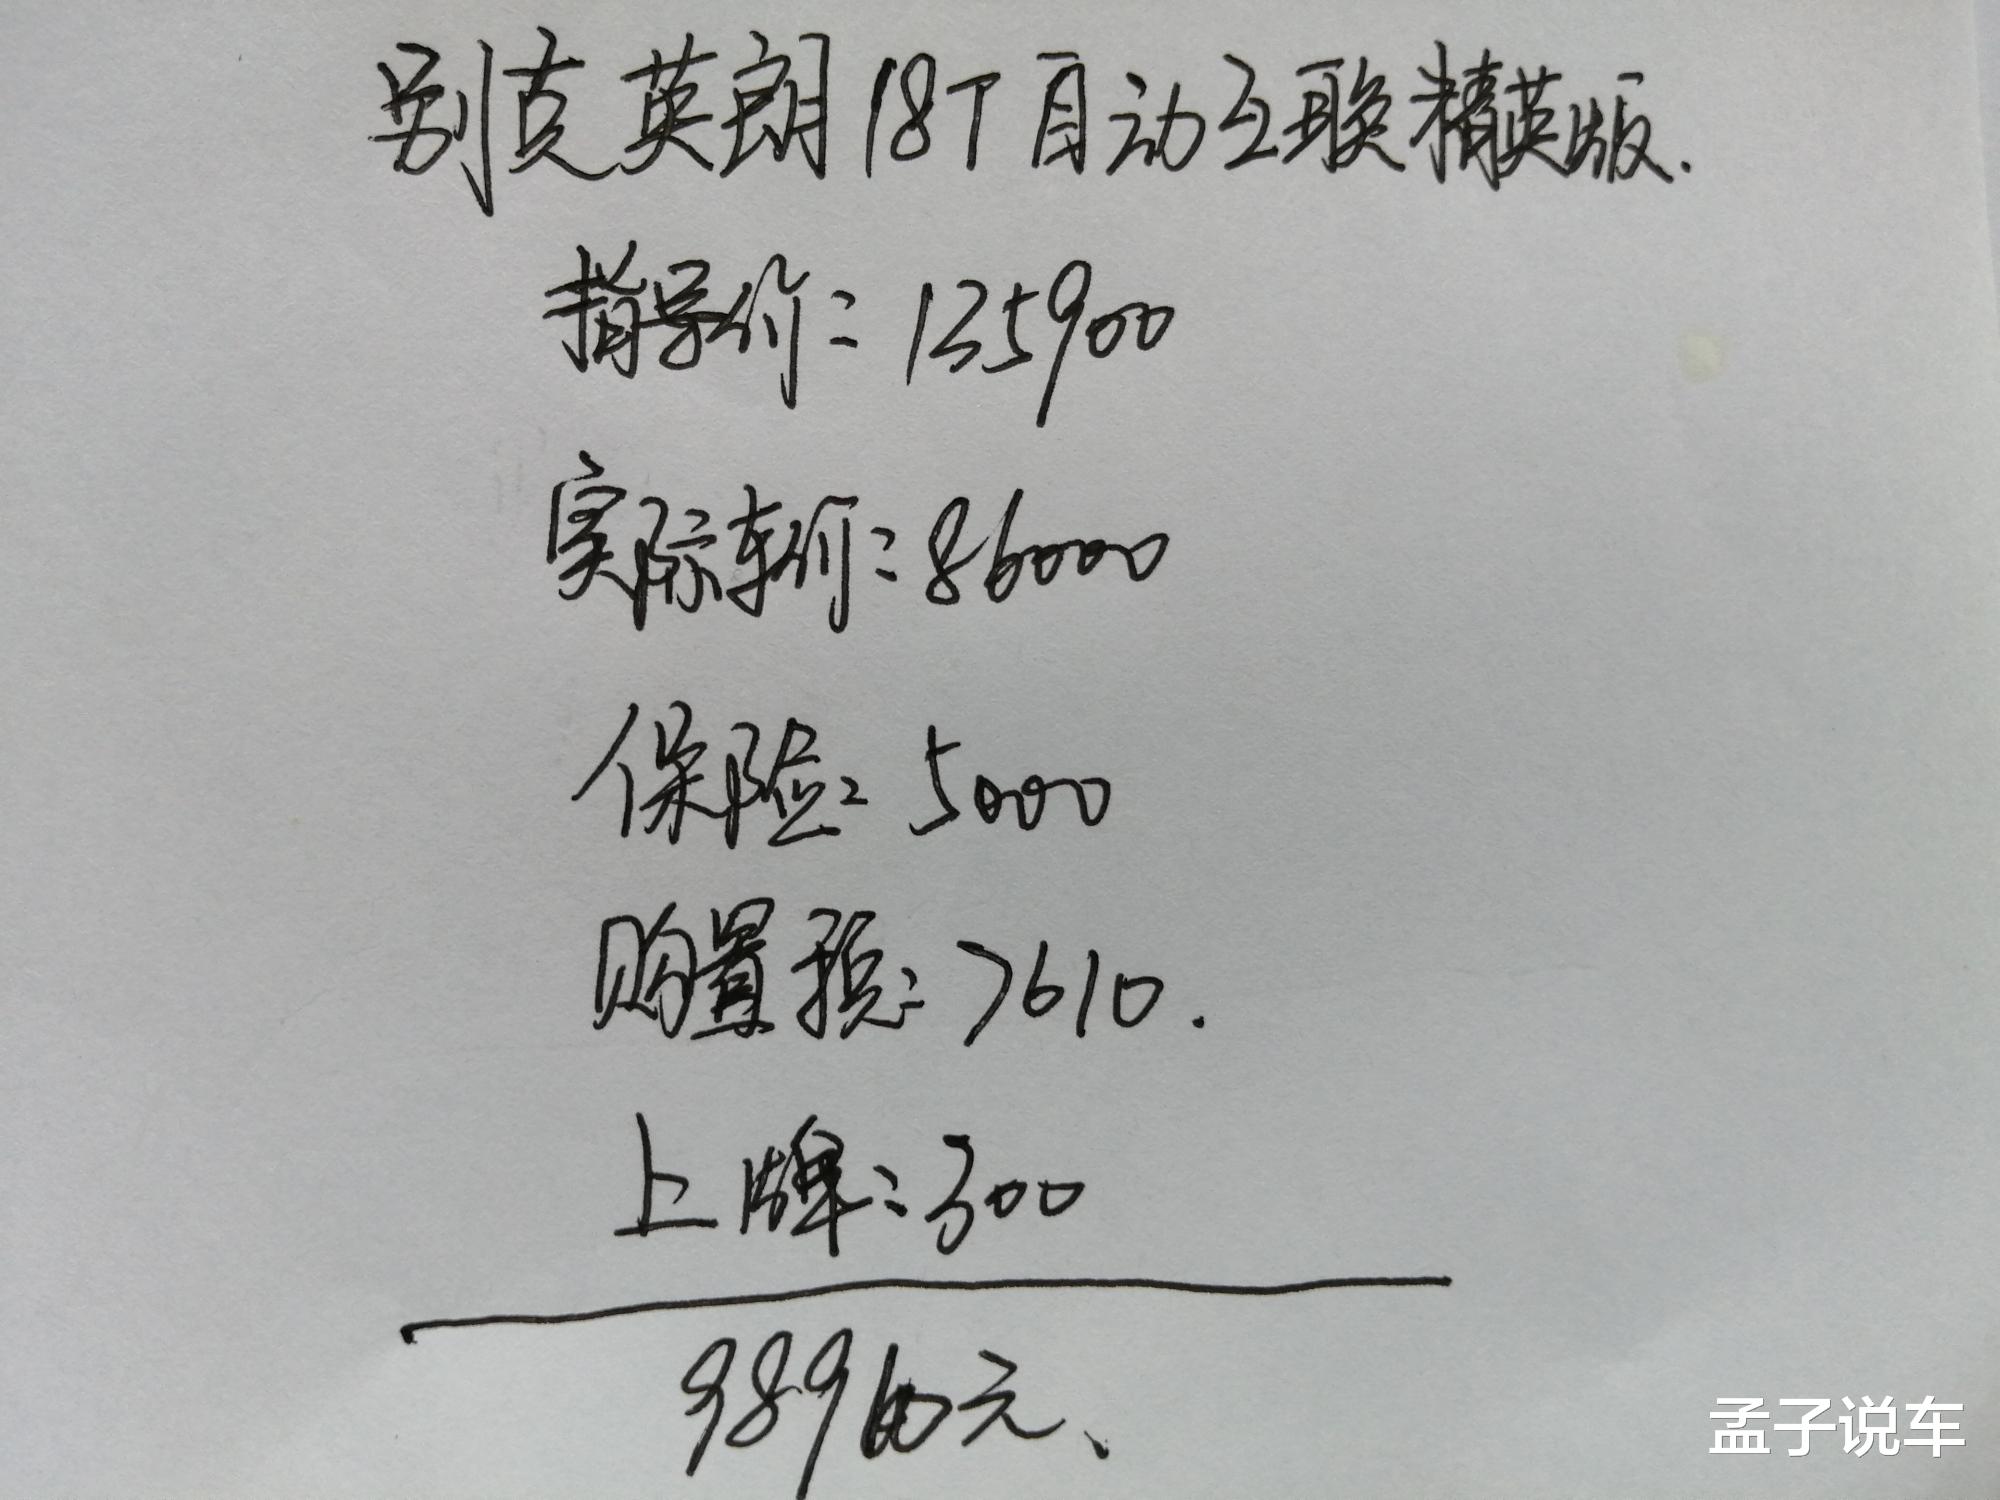 别克英朗18T自动互联精英版.
指导价:135900
实际车价:86000
保险:5000
购置税:7610.
上牌:300
元、
孟子说车